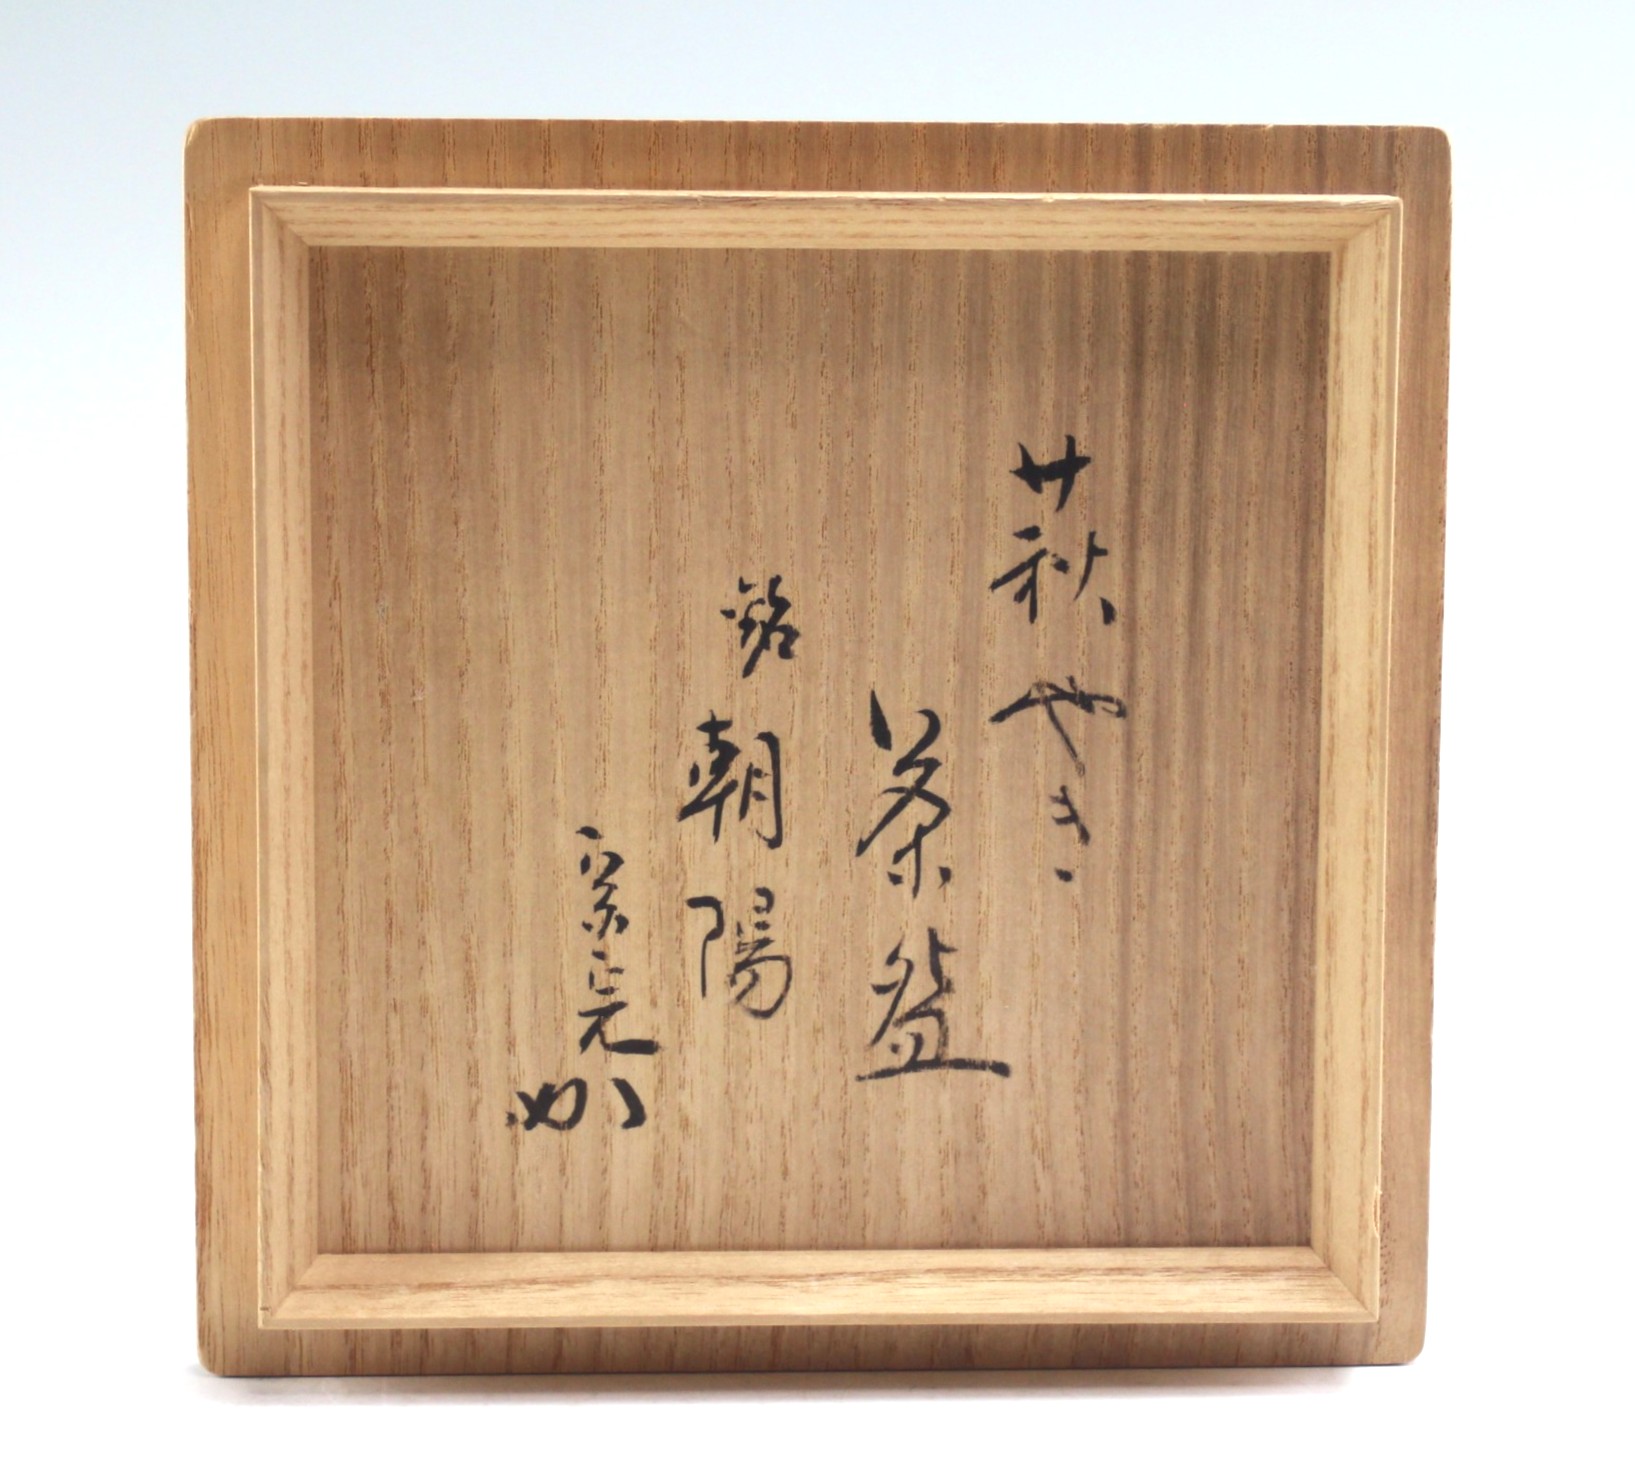 萩やき
茶盌
銘
朝陽
宗完